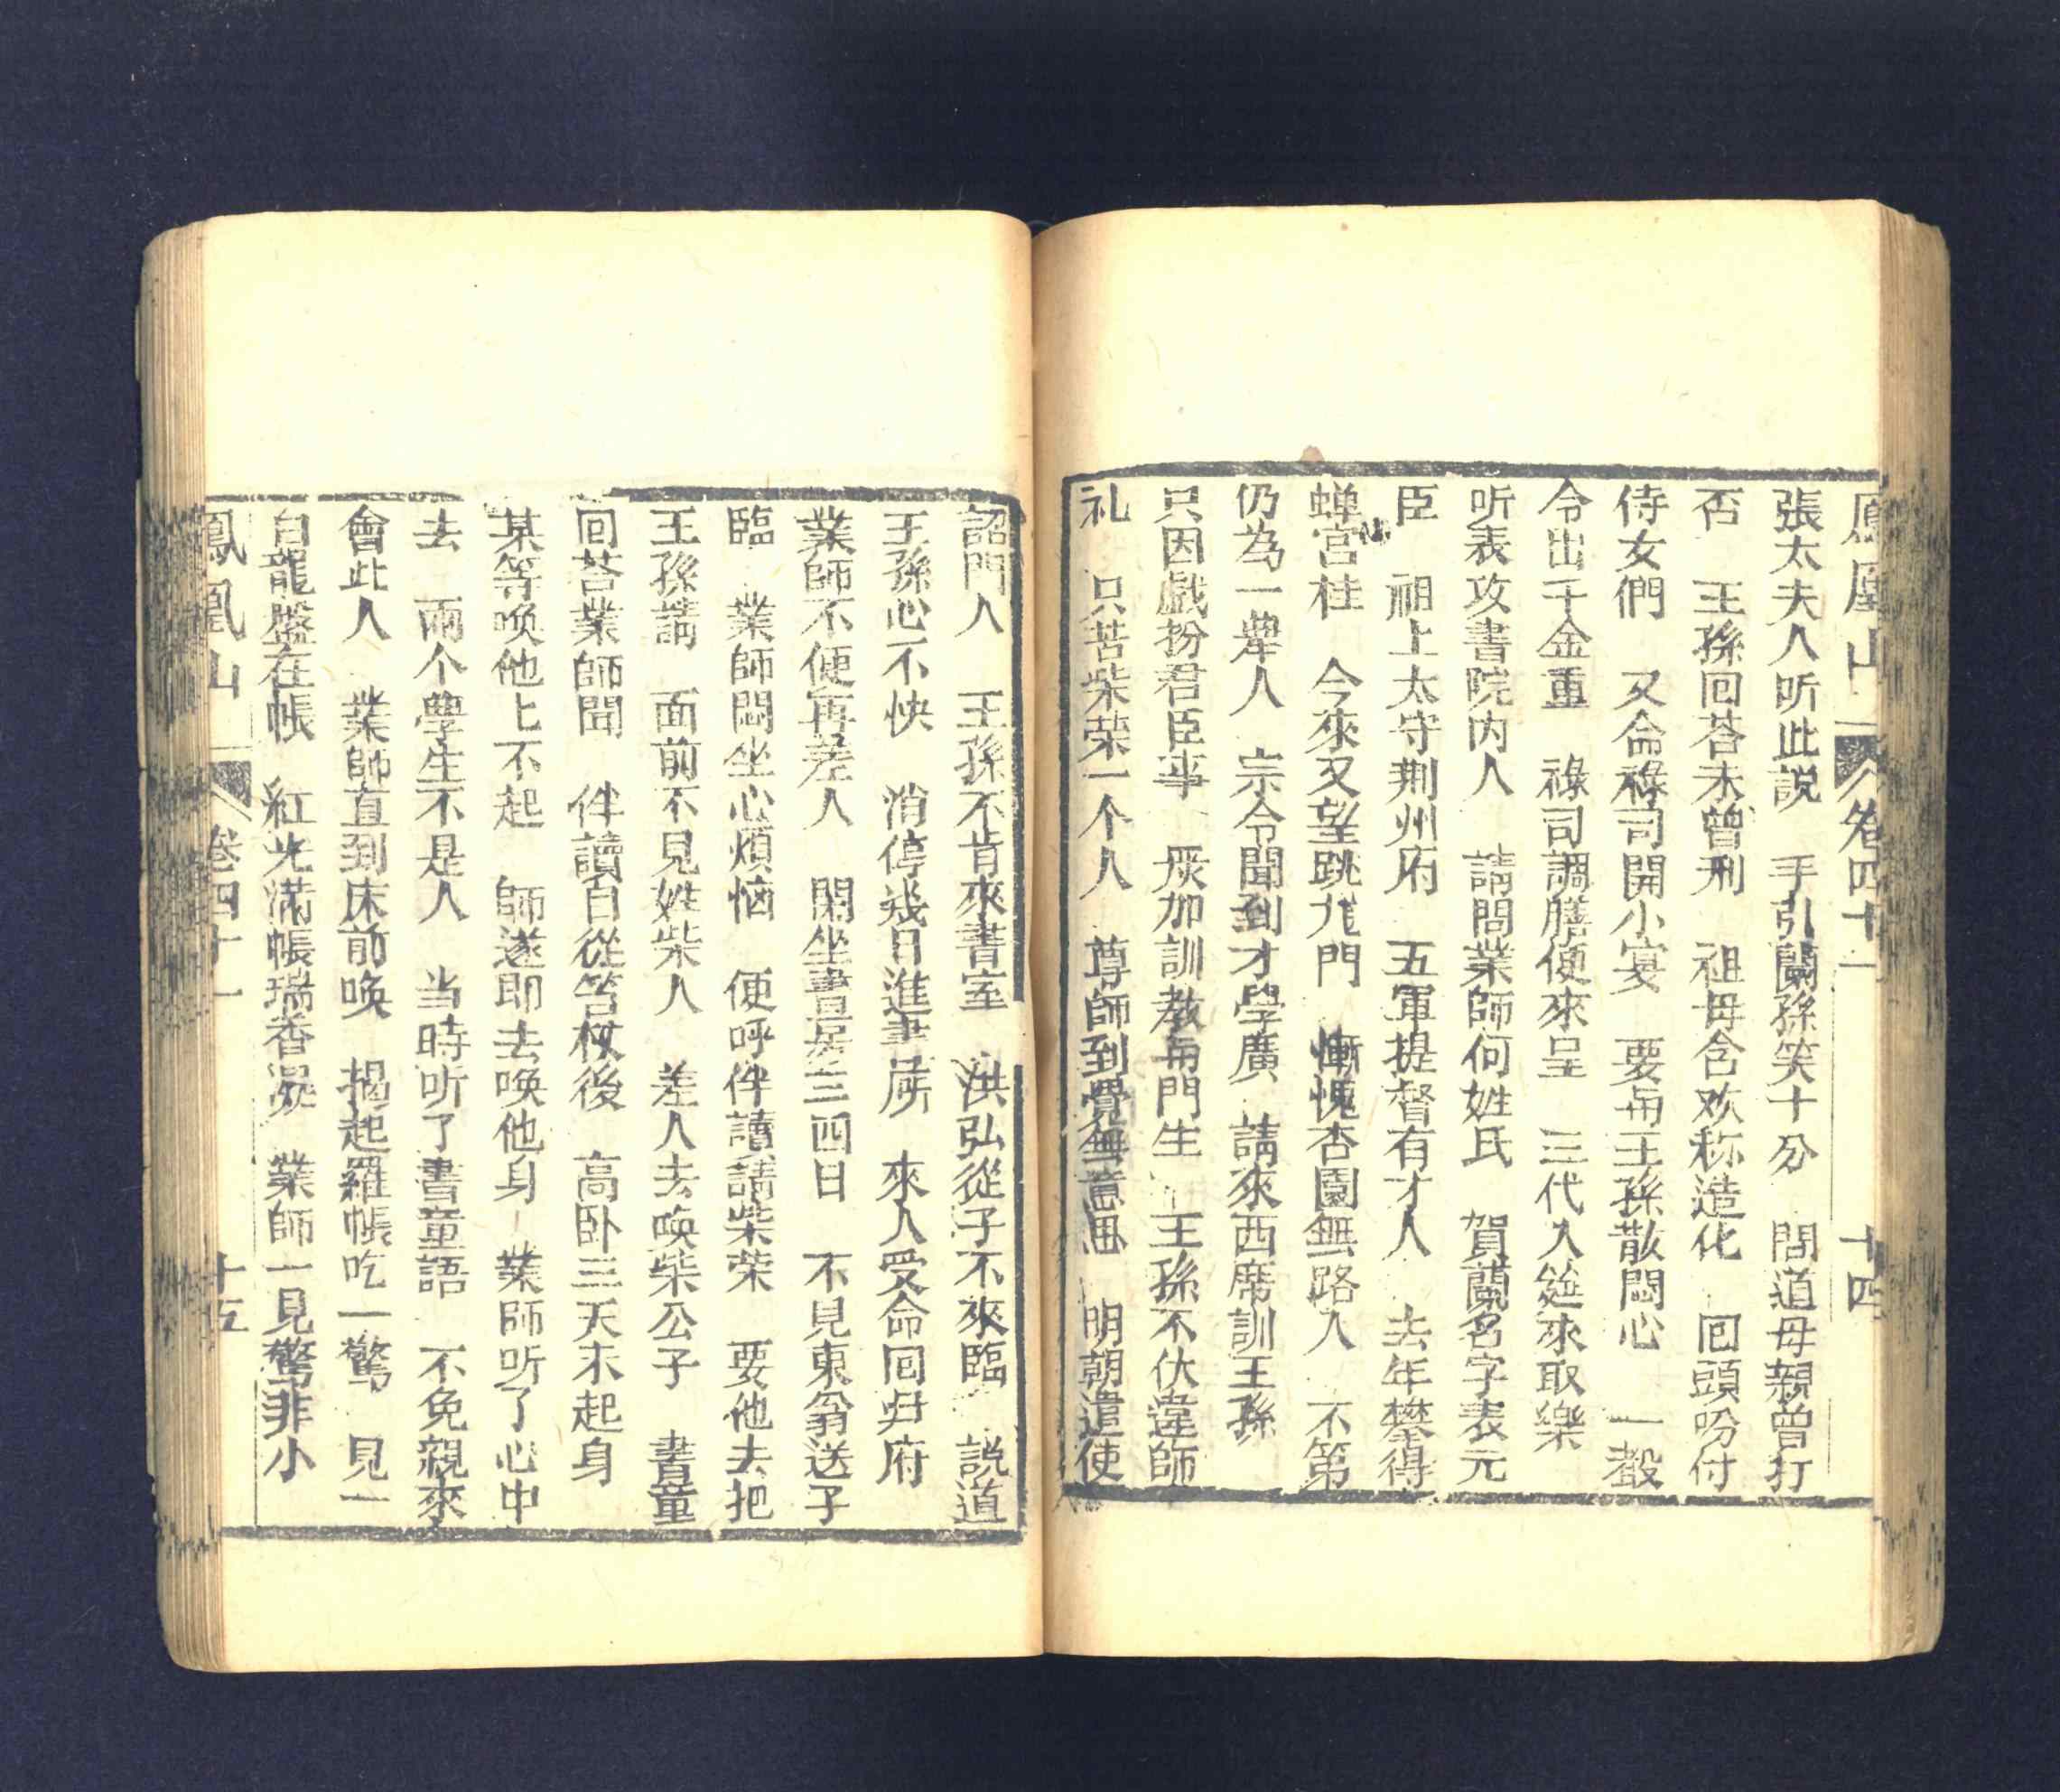 鳳凰山 卷四十一 十四
張太夫人听此説 手引蘭孫笑十分 問道母親曾打
否 王孫回荅未曾刑 祖母含欢称造化 回頭吩付
侍女們 又命祿司開小宴 要与王孫散悶心 一聲
令出千金重 祿司調膳便來呈 三代入筵來取樂
听表攻書院内人 請問業師何姓氏 賀蘭名字表元
臣 祖上太守荆州府 五軍提督有才人 去年攀得
蟬宮桂 今來又望跳龙門 慚愧杏園無路入 不第
仍為一舉人 宗令聞到才學廣 請來西席訓王孫
只因戯扮君臣事 嚴加訓教与門生 王孫不伏違師
礼 只苦柴荣一个人 尊師到覺無意思 明朝遣使
詔門人 王孫不肯來書室 洪弘從子不來臨 説道
王孫心不快 消停幾日進書房 來人受命回归府
業師不便再差人 閑坐書房三四日 不見東翁送子
臨 業師悶坐心煩惱 便呼伴讀請柴荣 要他去把
王孫請 面前不見姓柴人 差人去唤柴公子 書童
回荅業師聞 伴讀自從笞杖後 高卧三天未起身
某等唤他上不起 師遂即去唤他身 業師听了心中
去 兩个學生不是人 当時听了書童語 不免親來
會此人 業師直到床前唤 揭起羅帳吃一驚 見一
白龍盤在帳 紅光滿帳瑞香凝 業師一見驚非小
鳳凰山 卷四十一 十五